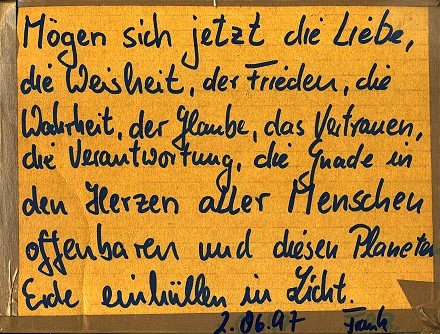 Mögen sich jetzt die Liebe,
die Weisheit, der Frieden, die
Wahrheit, der Glaube, das Vertrauen,
die Verantwortung, die Gnade in
den Herzen aller Menschen
offenbaren und diesen Planeten
Erde einhüllen in Licht.
2.06.97